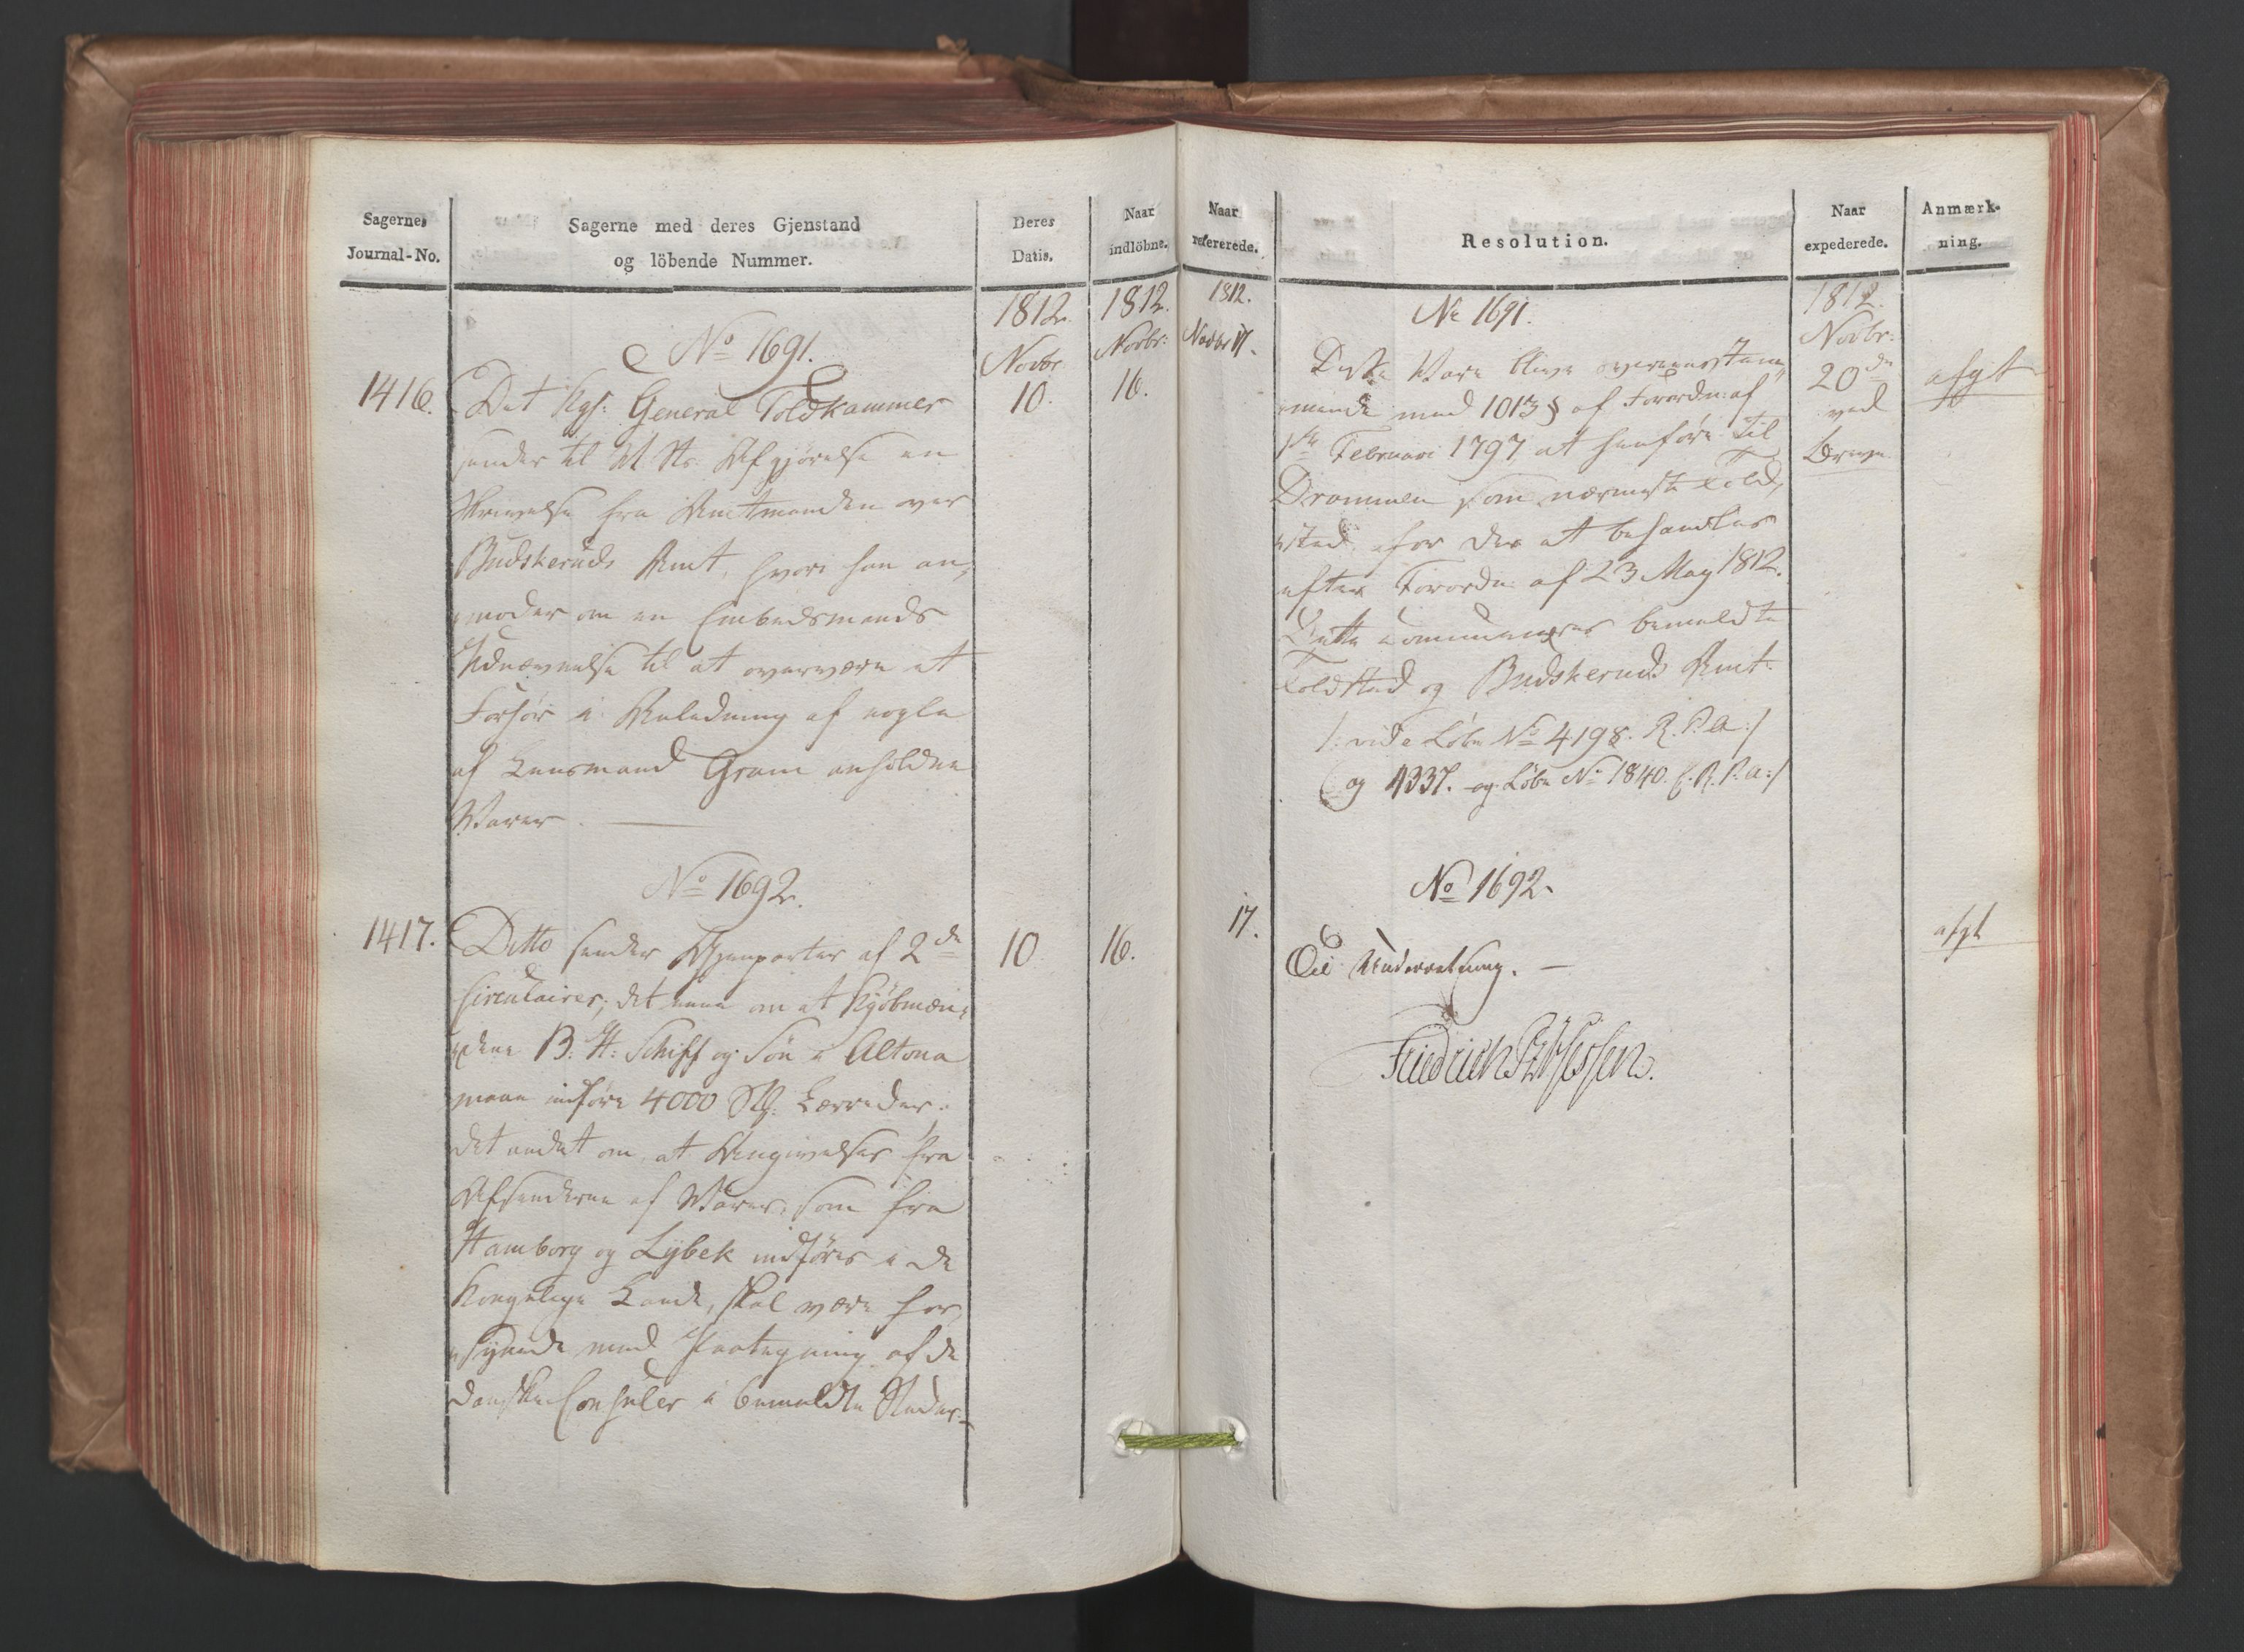 Sagernes
Journal-No.
Sagerne med deres Gjenstand
og löbende Nummer.
Deres
Datis.
Naar
indlöbne.
1812.
1812.
Novbr.
Novbr:
No 1691.
1416.
10.
16.
Det Kgl: General Toldkammer
sender til Afgjørelse en
Skrivelse fra Amtmanden over
Budskeruds Amt, hvori han an-
moder om en Embedsmands
Udnævnelse til at overvære et
Forhør i Anledning af nogle
af Lensmand Gram anholdne
Varer.
No 1692.
1417.
10
16.
Ditto sender Gjenparter af 2de
Circulairer; det ene om at Kjøbmæn-
dene B. H. Schiff og Søn i Altona
maae indføre 4000 Lærreder;
det andet om at Angivelser fra
Afsenderne af Varer, som fra
Hamborg og Lybek indføres i de
Kongelige Lande, skal være for-
synede med Paategning af de
danske Consuler i bemeldte Stæder.
Naar
refererede.
Resolution.
Naar
expederede.
Anmærk-
ning.
1812.
Novbr 17.
1812.
Novbr:
20de
ved
Breve.
No 1691.
afgt
Disse Vare blive overeensstem-
mende med 1013 § af Forordn: af
1ste Februari 1797 at henføre til
Drammen som nærmeste Told-
sted, for der at behandles
efter Forordn: af 23 May 1812.
Dette communiceres bemeldte
Toldsted og Budskeruds Amt.
/: vide Løbe No 4198. R. P. A :/
og 4337. og Løbe No 1840. E. R. P. A :/
No 1692.
17.
afgt
Til Underretning. —